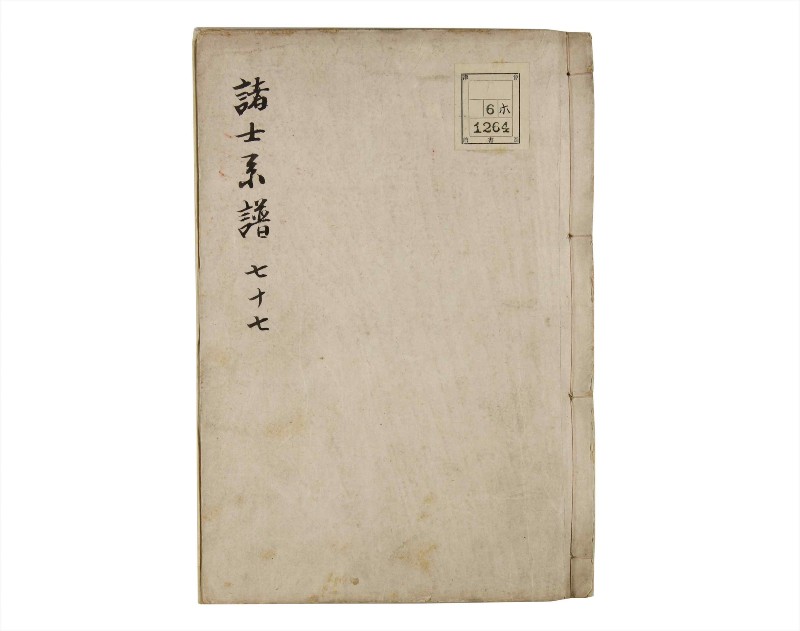 諸士系譜 七十七
6 ホ
1264